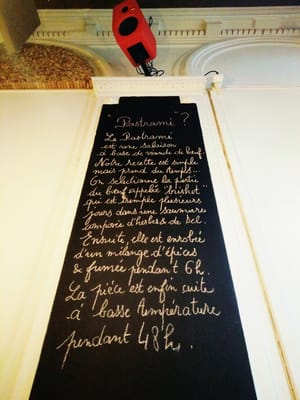 "Pastrami"?
Le Pastrami
est une salaison
à base de viande de bœuf
Notre recette est simple
mais prend du temps...
On sélectionne la partie
du bœuf appelée "brisket"
qui est trempée plusieurs
jours dans une saumure
composée d'herbes & de sel.
Ensuite, elle est enrobée
d'un mélange d'épices
& fumée pendant 6h.
La pièce est enfin cuite
à basse température
pendant 48h.